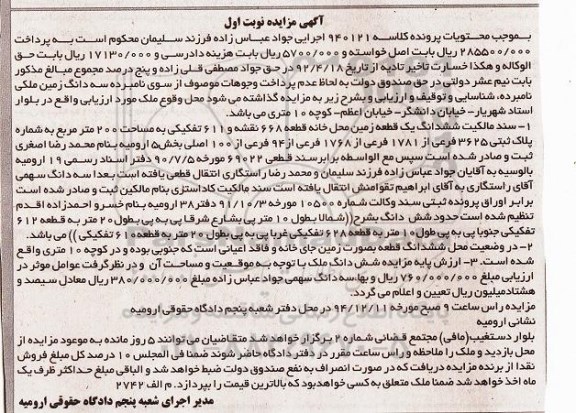 آگهی مزایده نوبت اول
بموجب محتویات پرونده کلاسه ۹۴۰۱۲۱ اجرایی جواد عباس زاده فرزند سلیمان محکوم است به پرداخت
۲۸۵۵۰۰/۰۰۰ ریال بابت اصل خواسته و ۵۷۰۰/۰۰۰ ریال بابت هزینه دادرسی و ۱۷۱۳۰/۰۰۰ ریال بابت حق
الوکاله و هکذا خسارت تاخیر تادیه از تاریخ ۹۲/۴/۱۸ در حق جواد مصطفی قلی زاده و پنج درصد مجموع مبالغ مذکور
بابت نیم عشر دولتی در حق صندوق دولت به لحاظ عدم پرداخت وجوهات موصوف از سوی نامبرده سه دانگ زمین ملکی
نامبرده، شناسایی و توقیف و ارزیابی و بشرح زیر به مزایده گذاشته می شود محل وقوع ملک مورد ارزیابی واقع در بلوار
استاد شهریار- خیابان دانشگر- خیابان اعظم- کوچه ۱۰ متری می باشد.
۱- سند مالکیت ششدانگ یک قطعه زمین محل خانه قطعه ۶۶۸ نقشه و ۶۱۱ تفکیکی به مساحت ۲۰۰ متر مربع به شماره
پلاک ثبتی ۳۶۲۵ فرعی از ۱۷۸۱ فرعی از ۱۷۶۸ فرعی از ۹۴ فرعی از ۱۰۰ اصلی بخش۵ ارومیه بنام محمد رضا اصغری
ثبت و صادر شده است سپس مع الواسطه برابر سند قطعی ۶۹۰۲۲ مورخه ۹۰/۷/۵ دفتر اسناد رسمی ۱۹ ارومیه
بالوسیه به آقایان جواد عباس زاده فرزند سلیمان و محمد رضا راستگاری انتقال قطعی یافته است بعدا سه دانگ سهمی
آقای راستگاری به آقای ابراهیم تقوامنش انتقال یافته است سند مالکیت کاداستری بنام مالکین ثبت و صادر شده است
برابر اوراق پرونده ثبتی سند وکالت شماره ۱۰۵۵۰ مورخه ۹۱/۱۰/۳ دفتر۳۸ ارومیه بنام خسرو احمدزاده اقدم
تنظیم شده است حدود شش دانگ بشرح((شمالا بطول ۱۰ متر پی بشارع شرقا پی به پی بطول ۲۰ متر به قطعه ۶۱۲
تفکیکی جنوبا پی به پی طول ۱۰ متر به قطعه ۶۲۸ تفکیکی غربا پی به پی بطول ۲۰ متر به قطعه ۶۱۰ تفکیکی )) می باشد.
۲- در وضعیت محل ششدانگ قطعه بصورت زمین جای خانه و فاقد اعیانی است که جنوبی بوده و در کوچه ۱۰ متری واقع
شده است. ۳- ارزش پایه مزایده شش دانگ ملک با توجه به موقعیت و مساحت آن و در نظر گرفت عوامل موثر در
ارزیابی مبلغ ۷۶۰/۰۰۰/۰۰۰ ریال و بهاسه دانگ سهمی جواد عباس زاده مبلغ ۳۸۰/۰۰۰/۰۰۰ ریال معادل سیصد و
هشتادمیلیون ریال تعیین و اعلام می گردد.
مزایده راس ساعت ۹ صبح مورخه ۹۴/۱۲/۱۱ در محل دفتر شعبه پنجم دادگاه حقوقی ارومیه
نشانی ارومیه
بلوار دستغیب(مافی) مجتمع قضائی شماره ۲ برگزار خواهد شد متقاضیان می توانند ۵ روز مانده به موعود مزایده از
محل بازدید و ملک را ملاحظه و راس ساعت مقرر در دفتر دادگاه حاضر شوند ضمنا فی المجلس ۱۰ درصد کل مبلغ فروش
نقدا از برنده مزایده دریافت که در صورت انصراف به نفع صندوق دولت ضبط خواهد شد و الباقی مبلغ حداکثر ظرف یک
ماه اخذ خواهد شد ضمنا ملک متعلق به کسی خواهدبود که بالاترین قیمت را بپردازد. م الف ۲۷۴۲
مدیر اجرای شعبه پنجم دادگاه حقوقی ارومیه